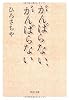 がんばらない、
がんばらない
ひろさちや